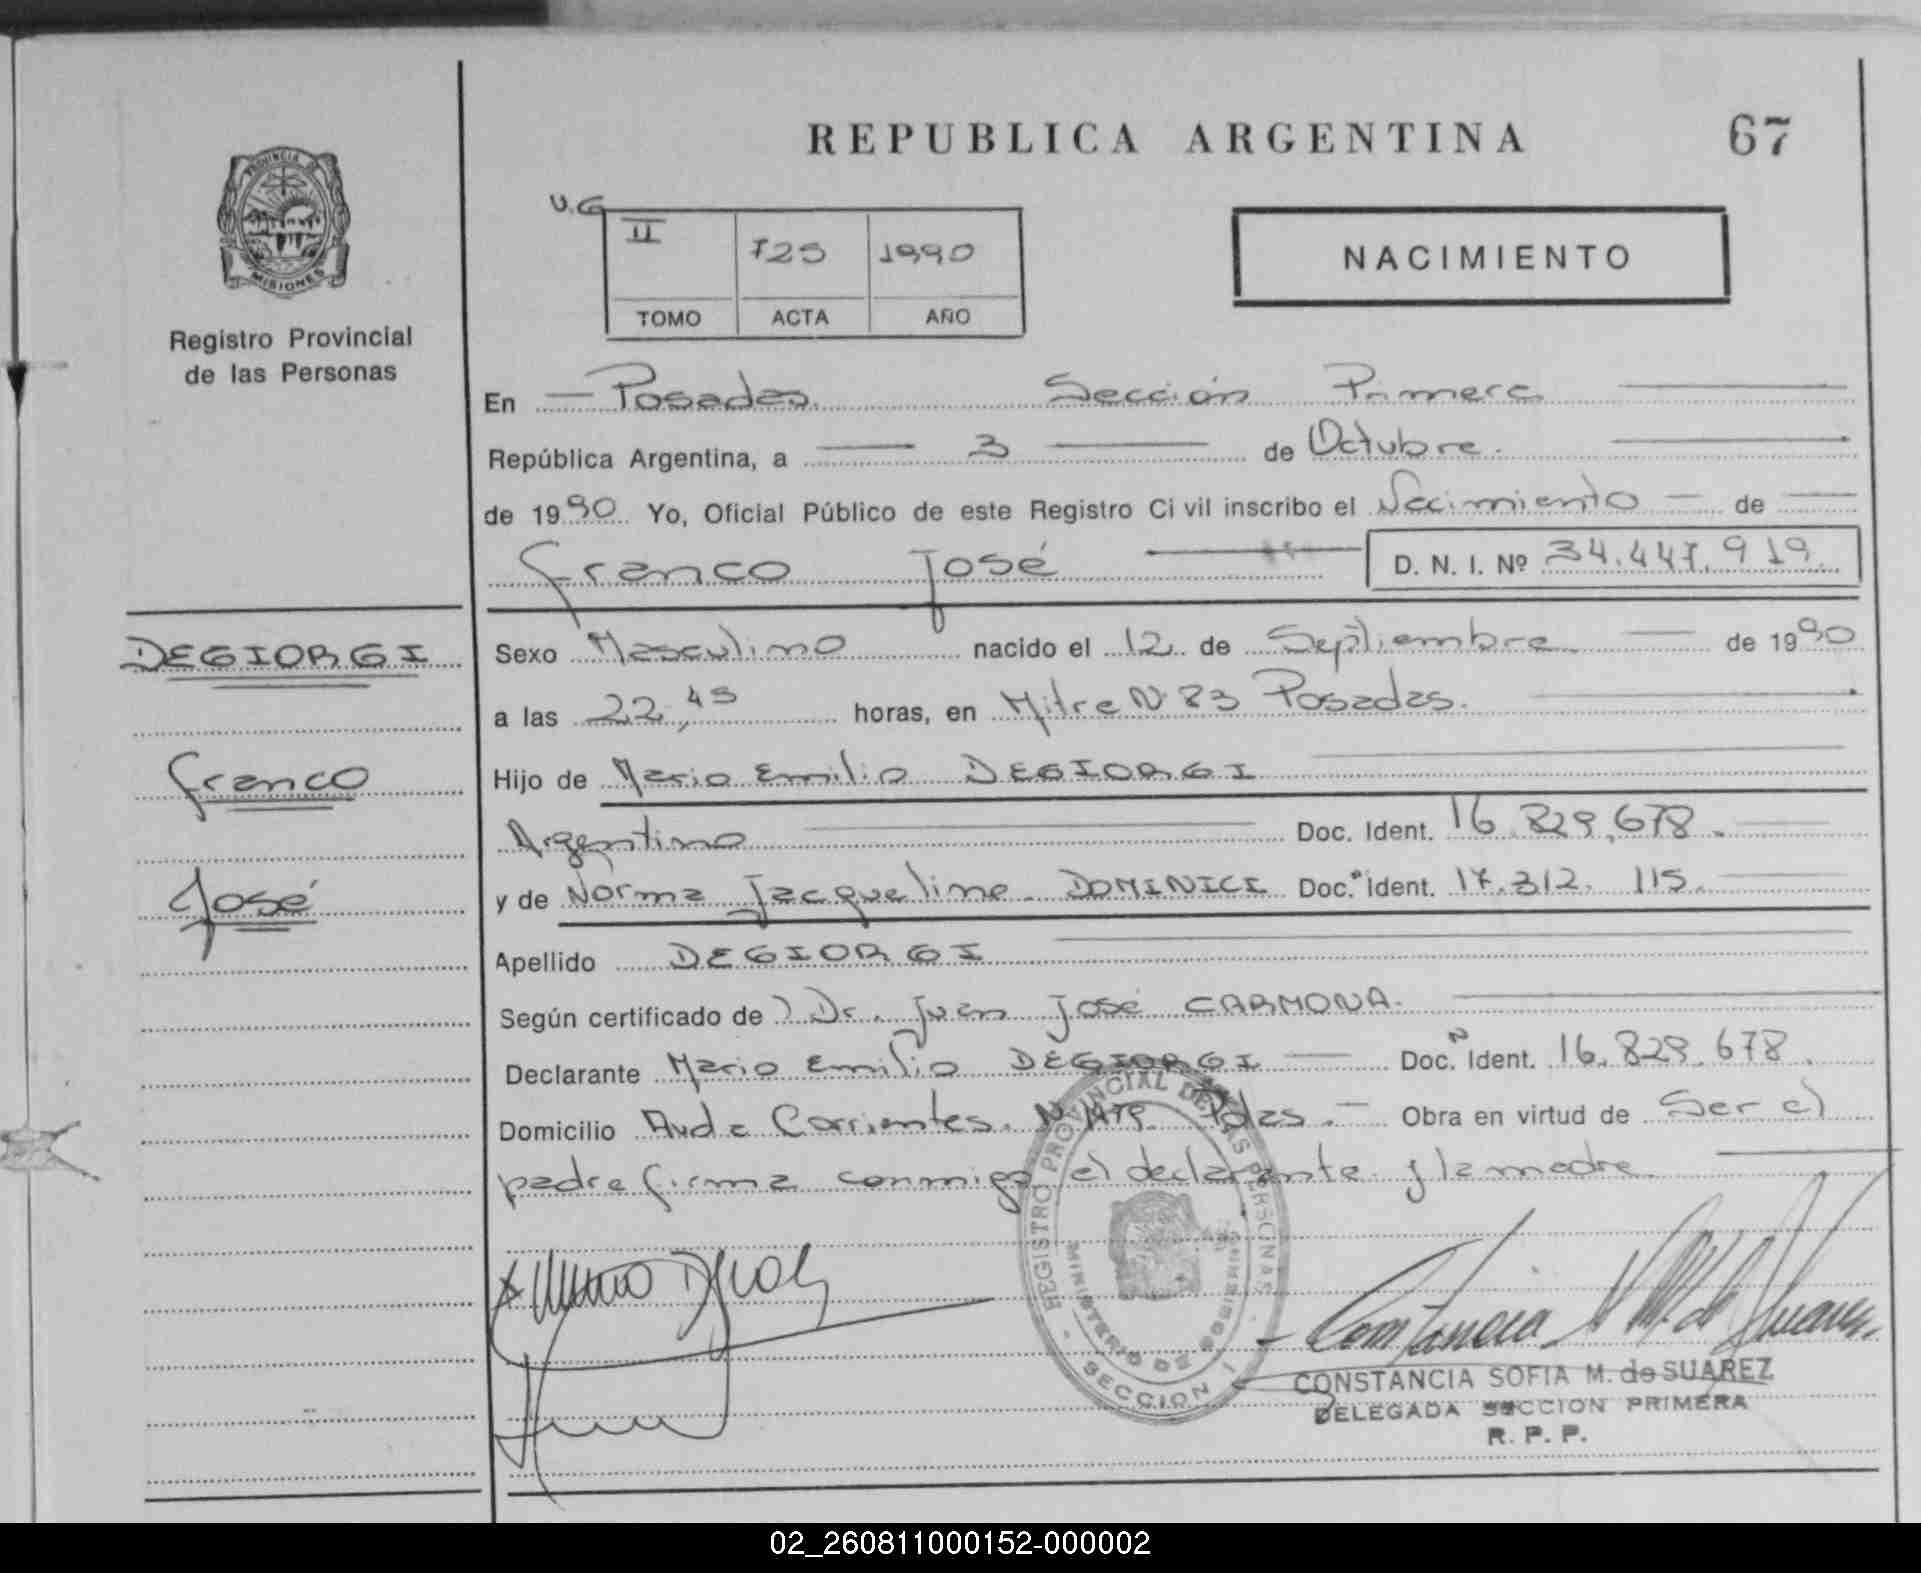 REPUBLICA ARGENTINA
67
PROVINCIA DE
MISIONES
Registro Provincial
de las Personas
U.G
II 725 1990
TOMO ACTA AÑO
NACIMIENTO
En Posadas. Sección Primera
República Argentina, a 3 de Octubre.
de 1990 Yo, Oficial Público de este Registro Ci vil inscribo el Nacimiento de
Franco José
D. N. I. Nº 34.447.919.
DEGIORGI
Franco
José
Sexo Masculino nacido el 12 de Septiembre de 1990
a las 22,45 horas, en Mitre Nº 83 Posadas.
Hijo de Mario Emilio DEGIORGI
Argentino Doc. Ident. 16.829.678.
y de Norma Jacqueline DOMINICI Doc. Ident. 17.312.115.
Apellido DEGIORGI
Según certificado de Dr. Juan José CARMONA.
Declarante Mario Emilio DEGIORGI Doc. Nº Ident. 16.829.678.
Domicilio Avda Corrientes. Pdas. Obra en virtud de Ser el
padre firma conmigo el declarante y la madre.
REGISTRO PROVINCIAL DE LAS PERSONAS
MINISTERIO DE GOBIERNO
SECCION I
Constancia de Suarez
CONSTANCIA SOFIA M. de SUAREZ
DELEGADA SECCION PRIMERA
R. P. P.
02_260811000152-000002